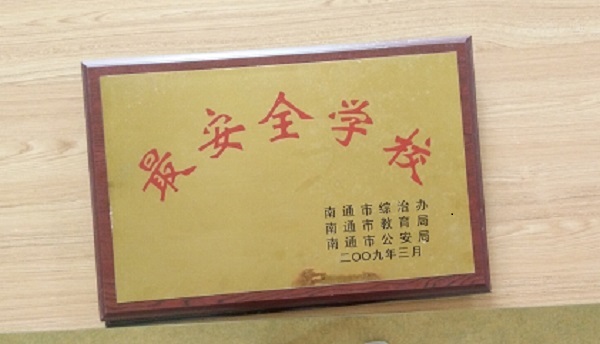 最安全学校
南通市综治办
南通市教育局
南通市公安局
二〇〇九年三月